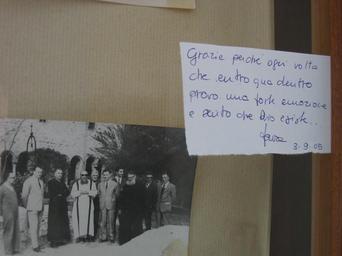 Grazie perché ogni volta
che entro qua dentro
provo una forte emozione
e sento che Dio esiste..
3.9.09